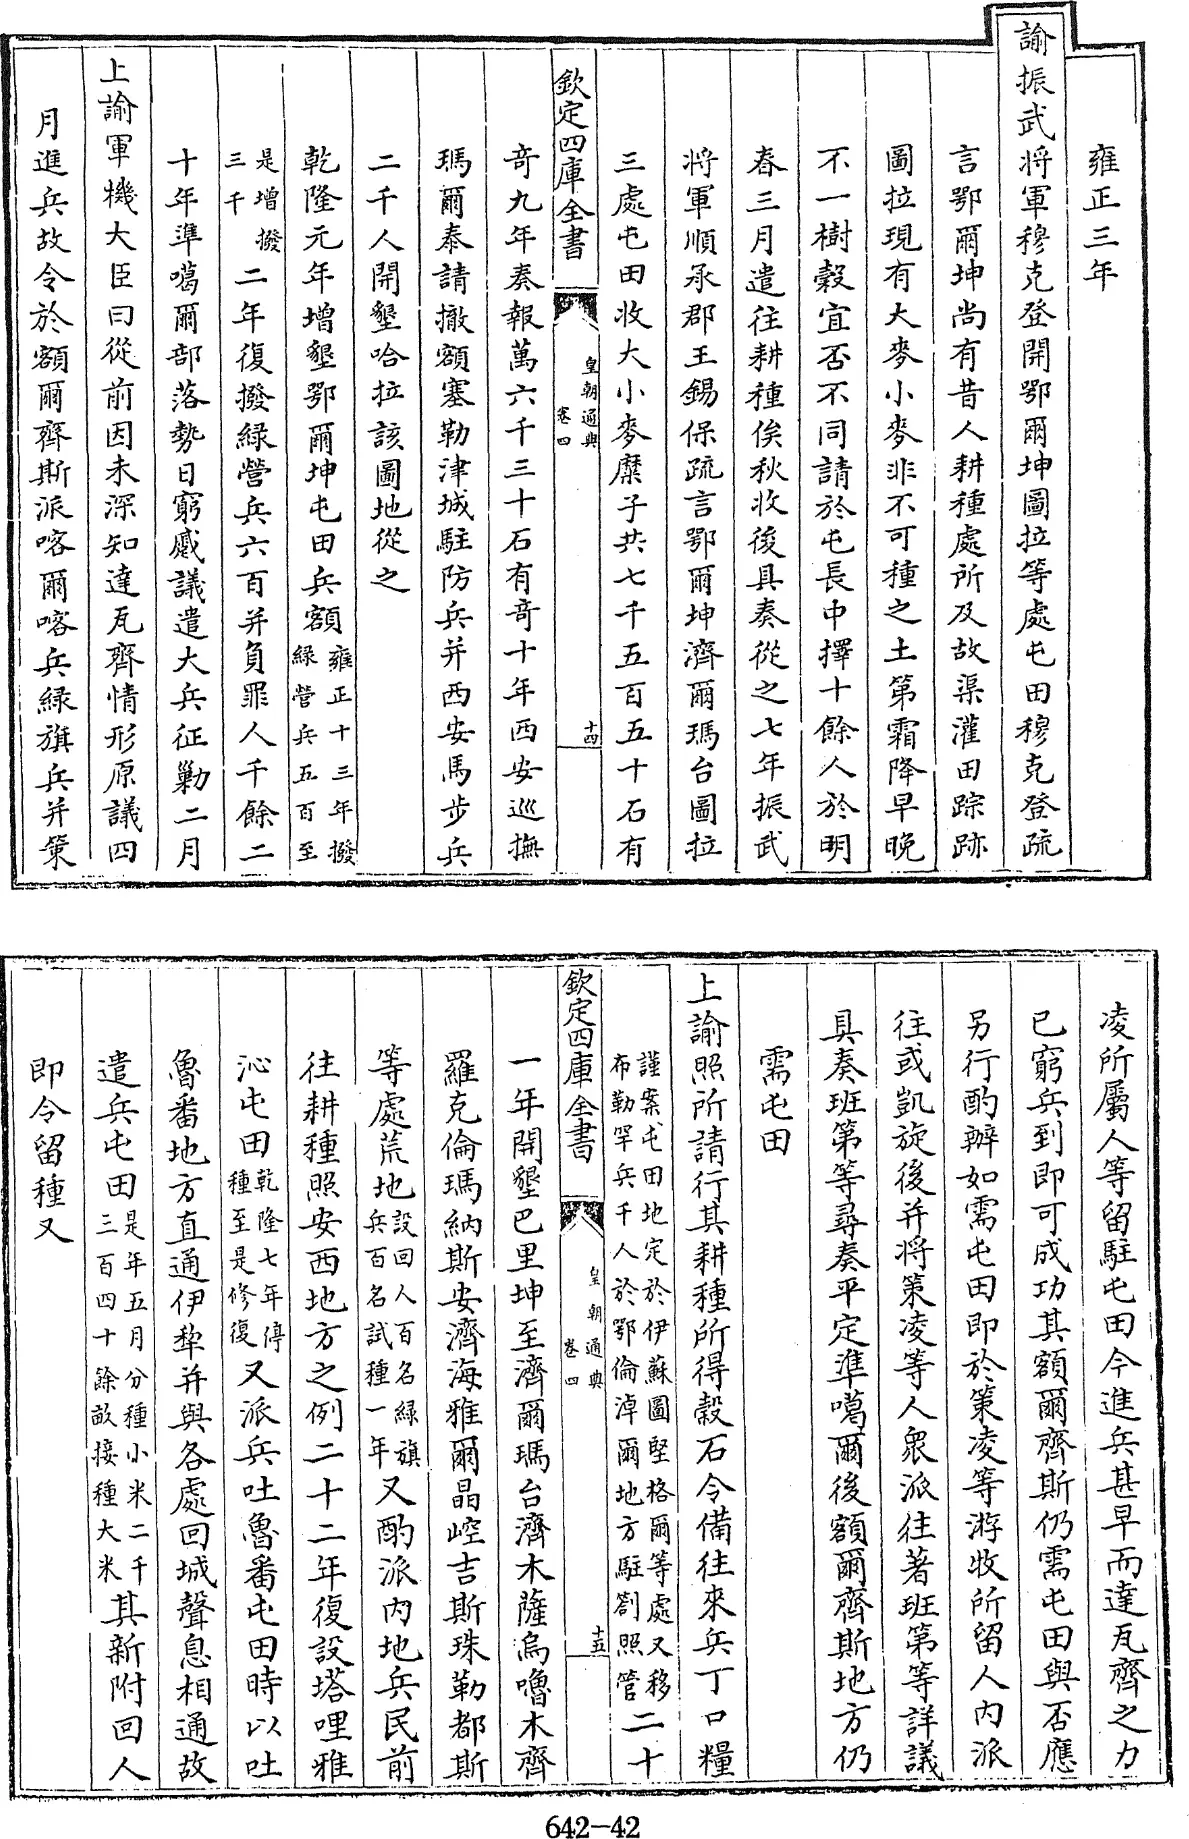 雍正三年
諭振武將軍穆克登開鄂爾坤圖拉等處屯田穆克登疏
言鄂爾坤尚有昔人耕種處所及故渠灌田踪跡
圖拉現有大麥小麥非不可種之土第霜降早晚
不一樹穀宜否不同請於屯長中擇十餘人於明
春三月遣往耕種俟秋收後具奏從之七年振武
將軍順承郡王錫保疏言鄂爾坤濟爾瑪台圖拉
三處屯田收大小麥糜子共七千五百五十石有
欽定四庫全書
皇朝通典
卷四
十四
奇九年奏報萬六千三十石有奇十年西安巡撫
瑪爾泰請撤額塞勒津城駐防兵并西安馬步兵
二千人開墾哈拉該圖地從之
乾隆元年增墾鄂爾坤屯田兵額雍正十三年撥綠營兵五百至
是增撥三千二年復撥綠營兵六百并負罪人千餘二
十年準噶爾部落勢日窮蹙議遣大兵征勦二月
上諭軍機大臣曰從前因未深知達瓦齊情形原議四
月進兵故令於額爾齊斯派喀爾喀兵綠旗兵并策
凌所屬人等留駐屯田今進兵甚早而達瓦齊之力
已窮兵到即可成功其額爾齊斯仍需屯田與否應
另行酌辦如需屯田即於策凌等游牧所留人內派
往或凱旋後并將策凌等人衆派往著班第等詳議
具奏班第等尋奏平定準噶爾後額爾齊斯地方仍
需屯田
上諭照所請行其耕種所得穀石令備往來兵丁口糧
謹案屯田地定於伊蘇圖堅格爾等處又移布勒罕兵千人於鄂倫淖爾地方駐劄照管二十
欽定四庫全書
皇朝通典
卷四
十五
一年開墾巴里坤至濟爾瑪台濟木薩烏嚕木齊
羅克倫瑪納斯安濟海雅爾晶崆吉斯珠勒都斯
等處荒地設回人百名綠旗兵百名試種一年又酌派內地兵民前
往耕種照安西地方之例二十二年復設塔哩雅
沁屯田乾隆七年停種至是修復又派兵吐魯番屯田時以吐
魯番地方直通伊犂并與各處回城聲息相通故
遣兵屯田是年五月分種小米二千三百四十餘畝接種大米其新附回人
即令留種又
642-42